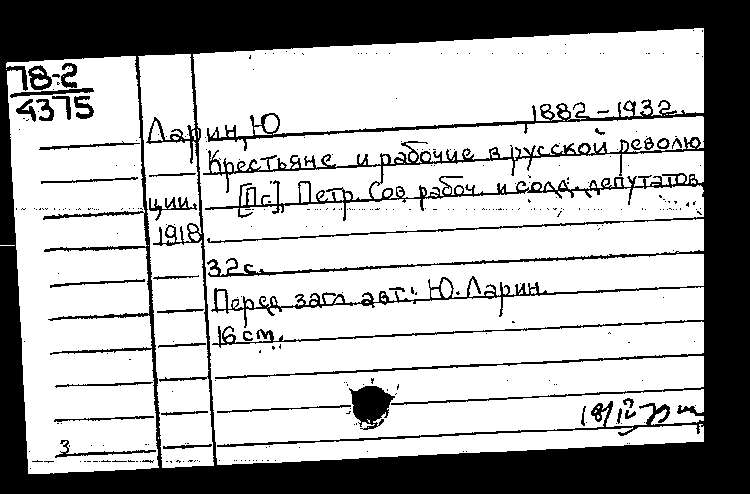 78-2
4375
Ларин, Ю 1882-1932.
Крестьяне и рабочие в русской револю
ции. [Пг], Петр. Сов. рабоч. и солд. депутатов,
1918.
32с.
Перед загл. авт.: Ю. Ларин.
16 см.
18/12
3